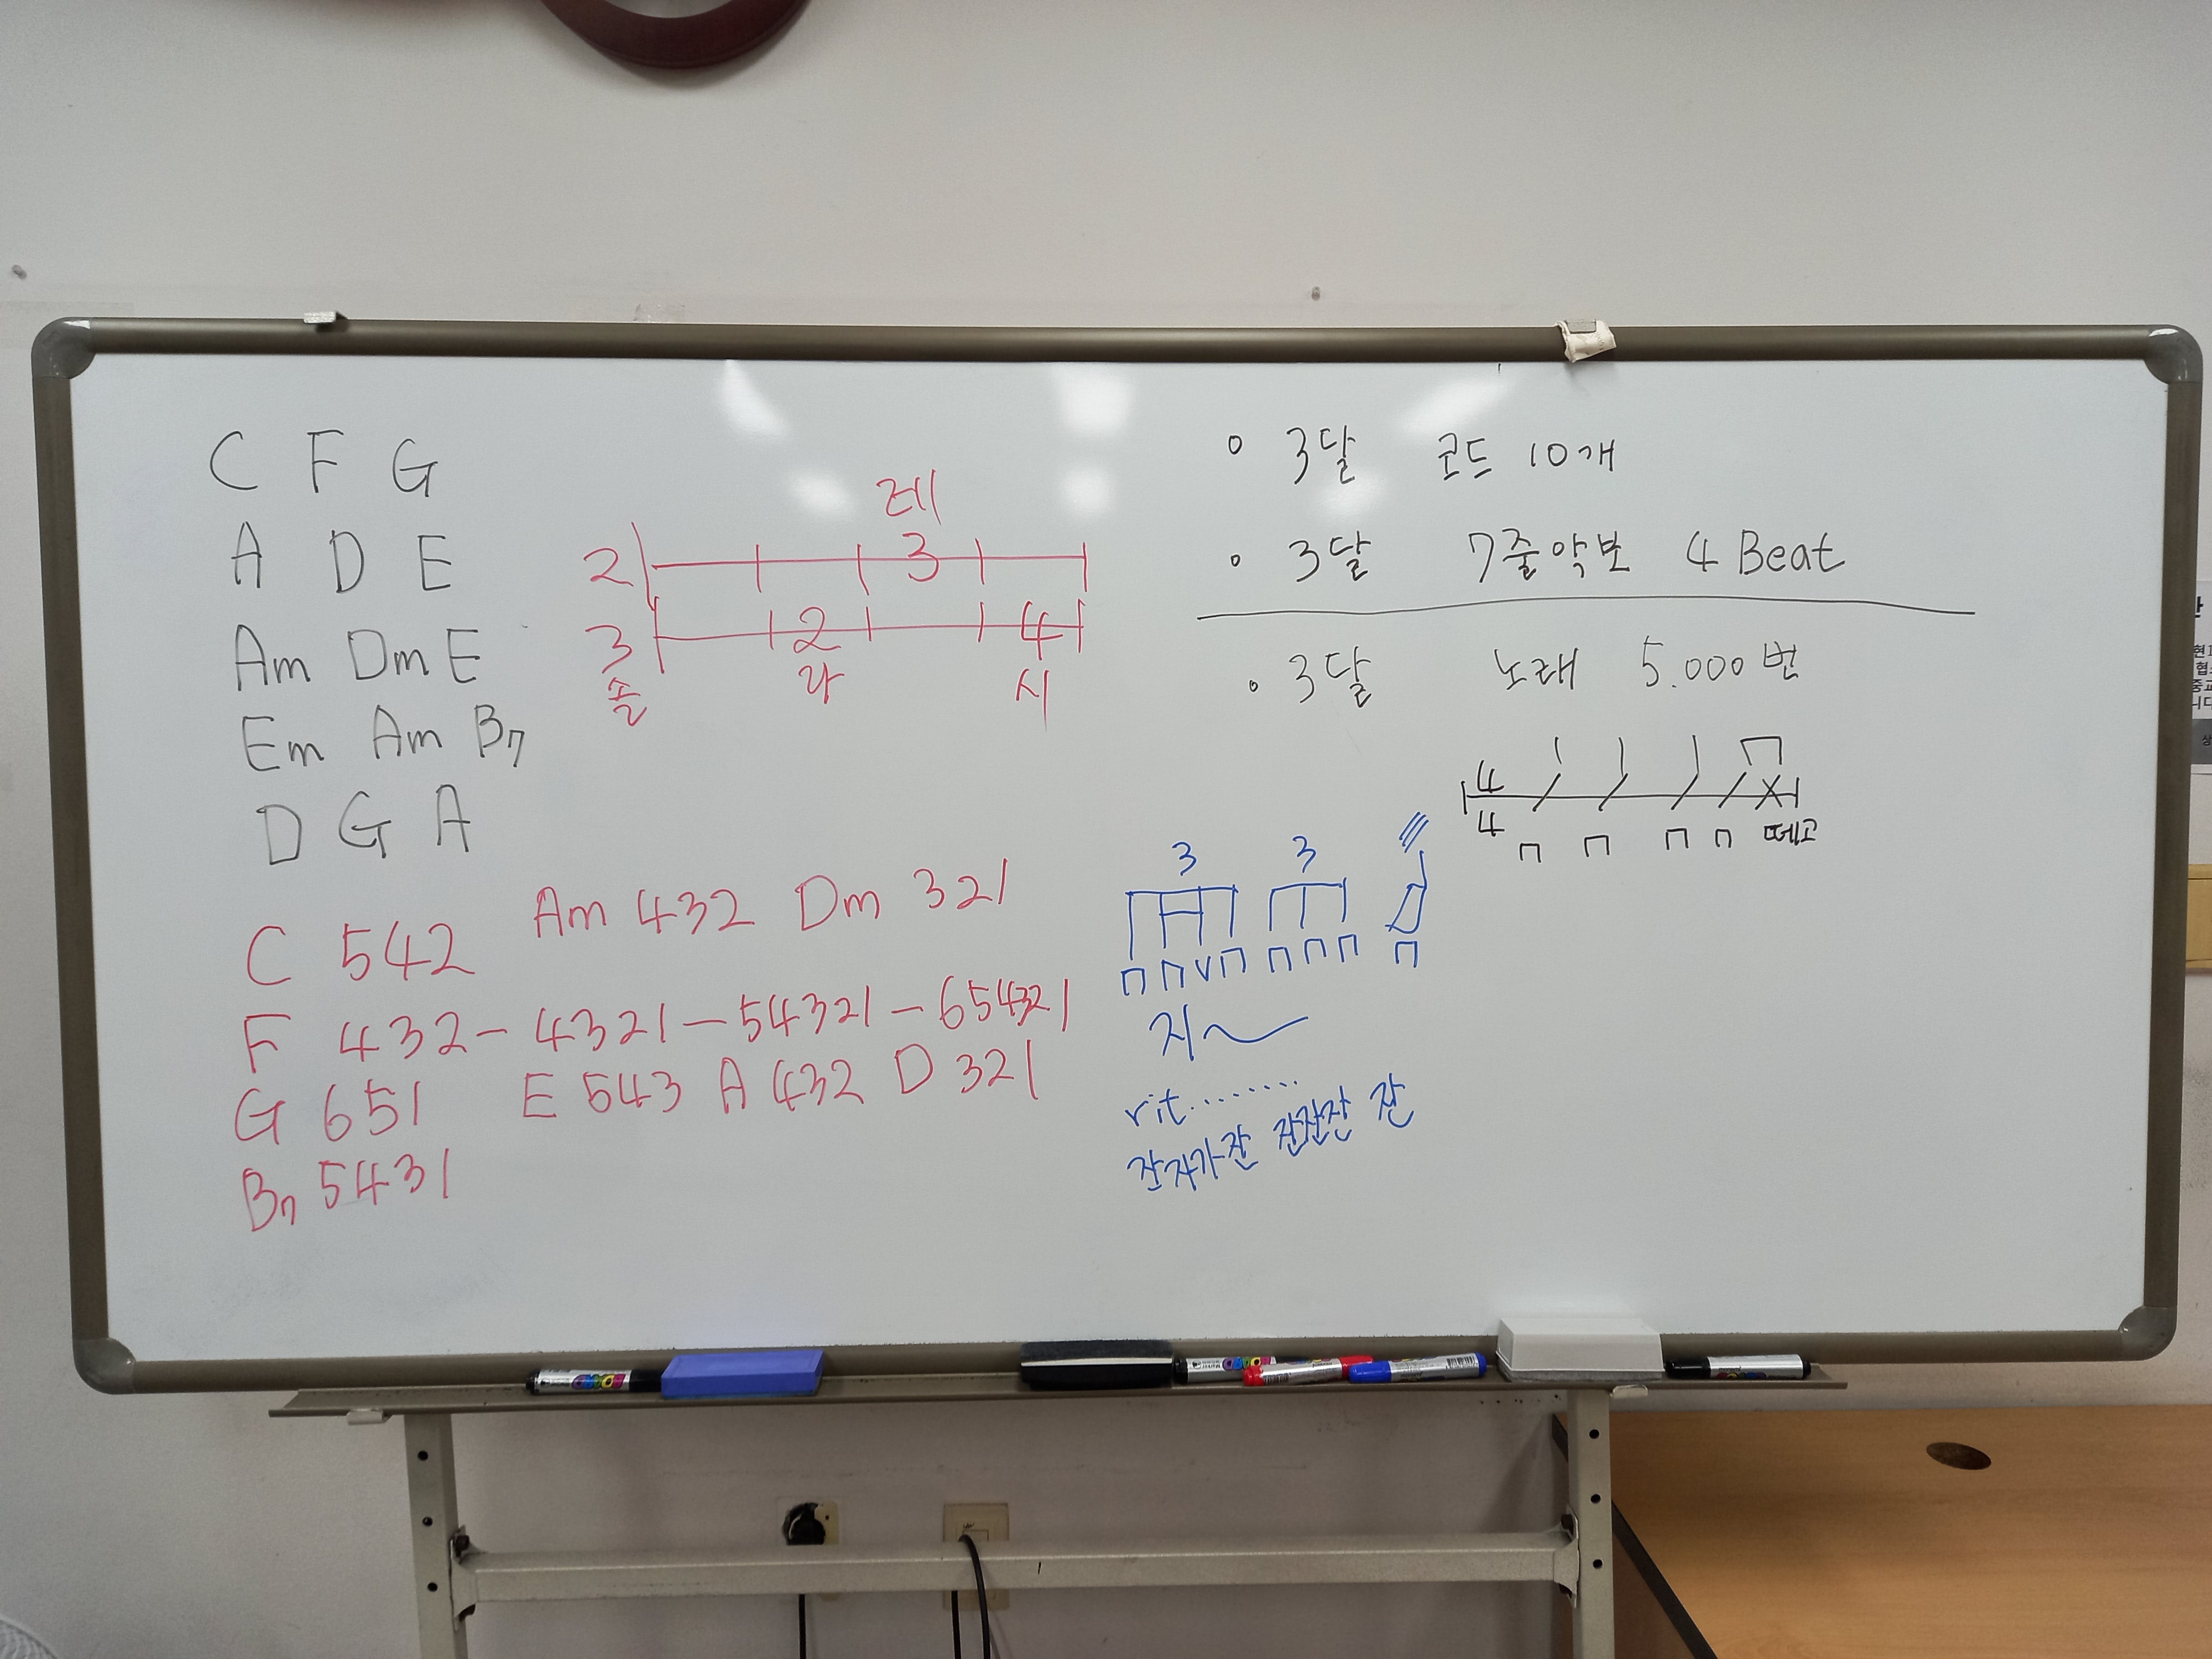 C F G
A D E
Am Dm E
Em Am B7
D G A
레
2 3
3 2 4
솔 라 시
Am 432 Dm 321
C 542
F 432-4321-54321-654321
G 651 E 543 A 432 D 321
B7 5431
3달 코드 10개
3달 7줄악보 4 Beat
3달 노래 5.000번
4
4
떼고
3 3
지~
rit........
잔자가잔 잔잔잔 잔